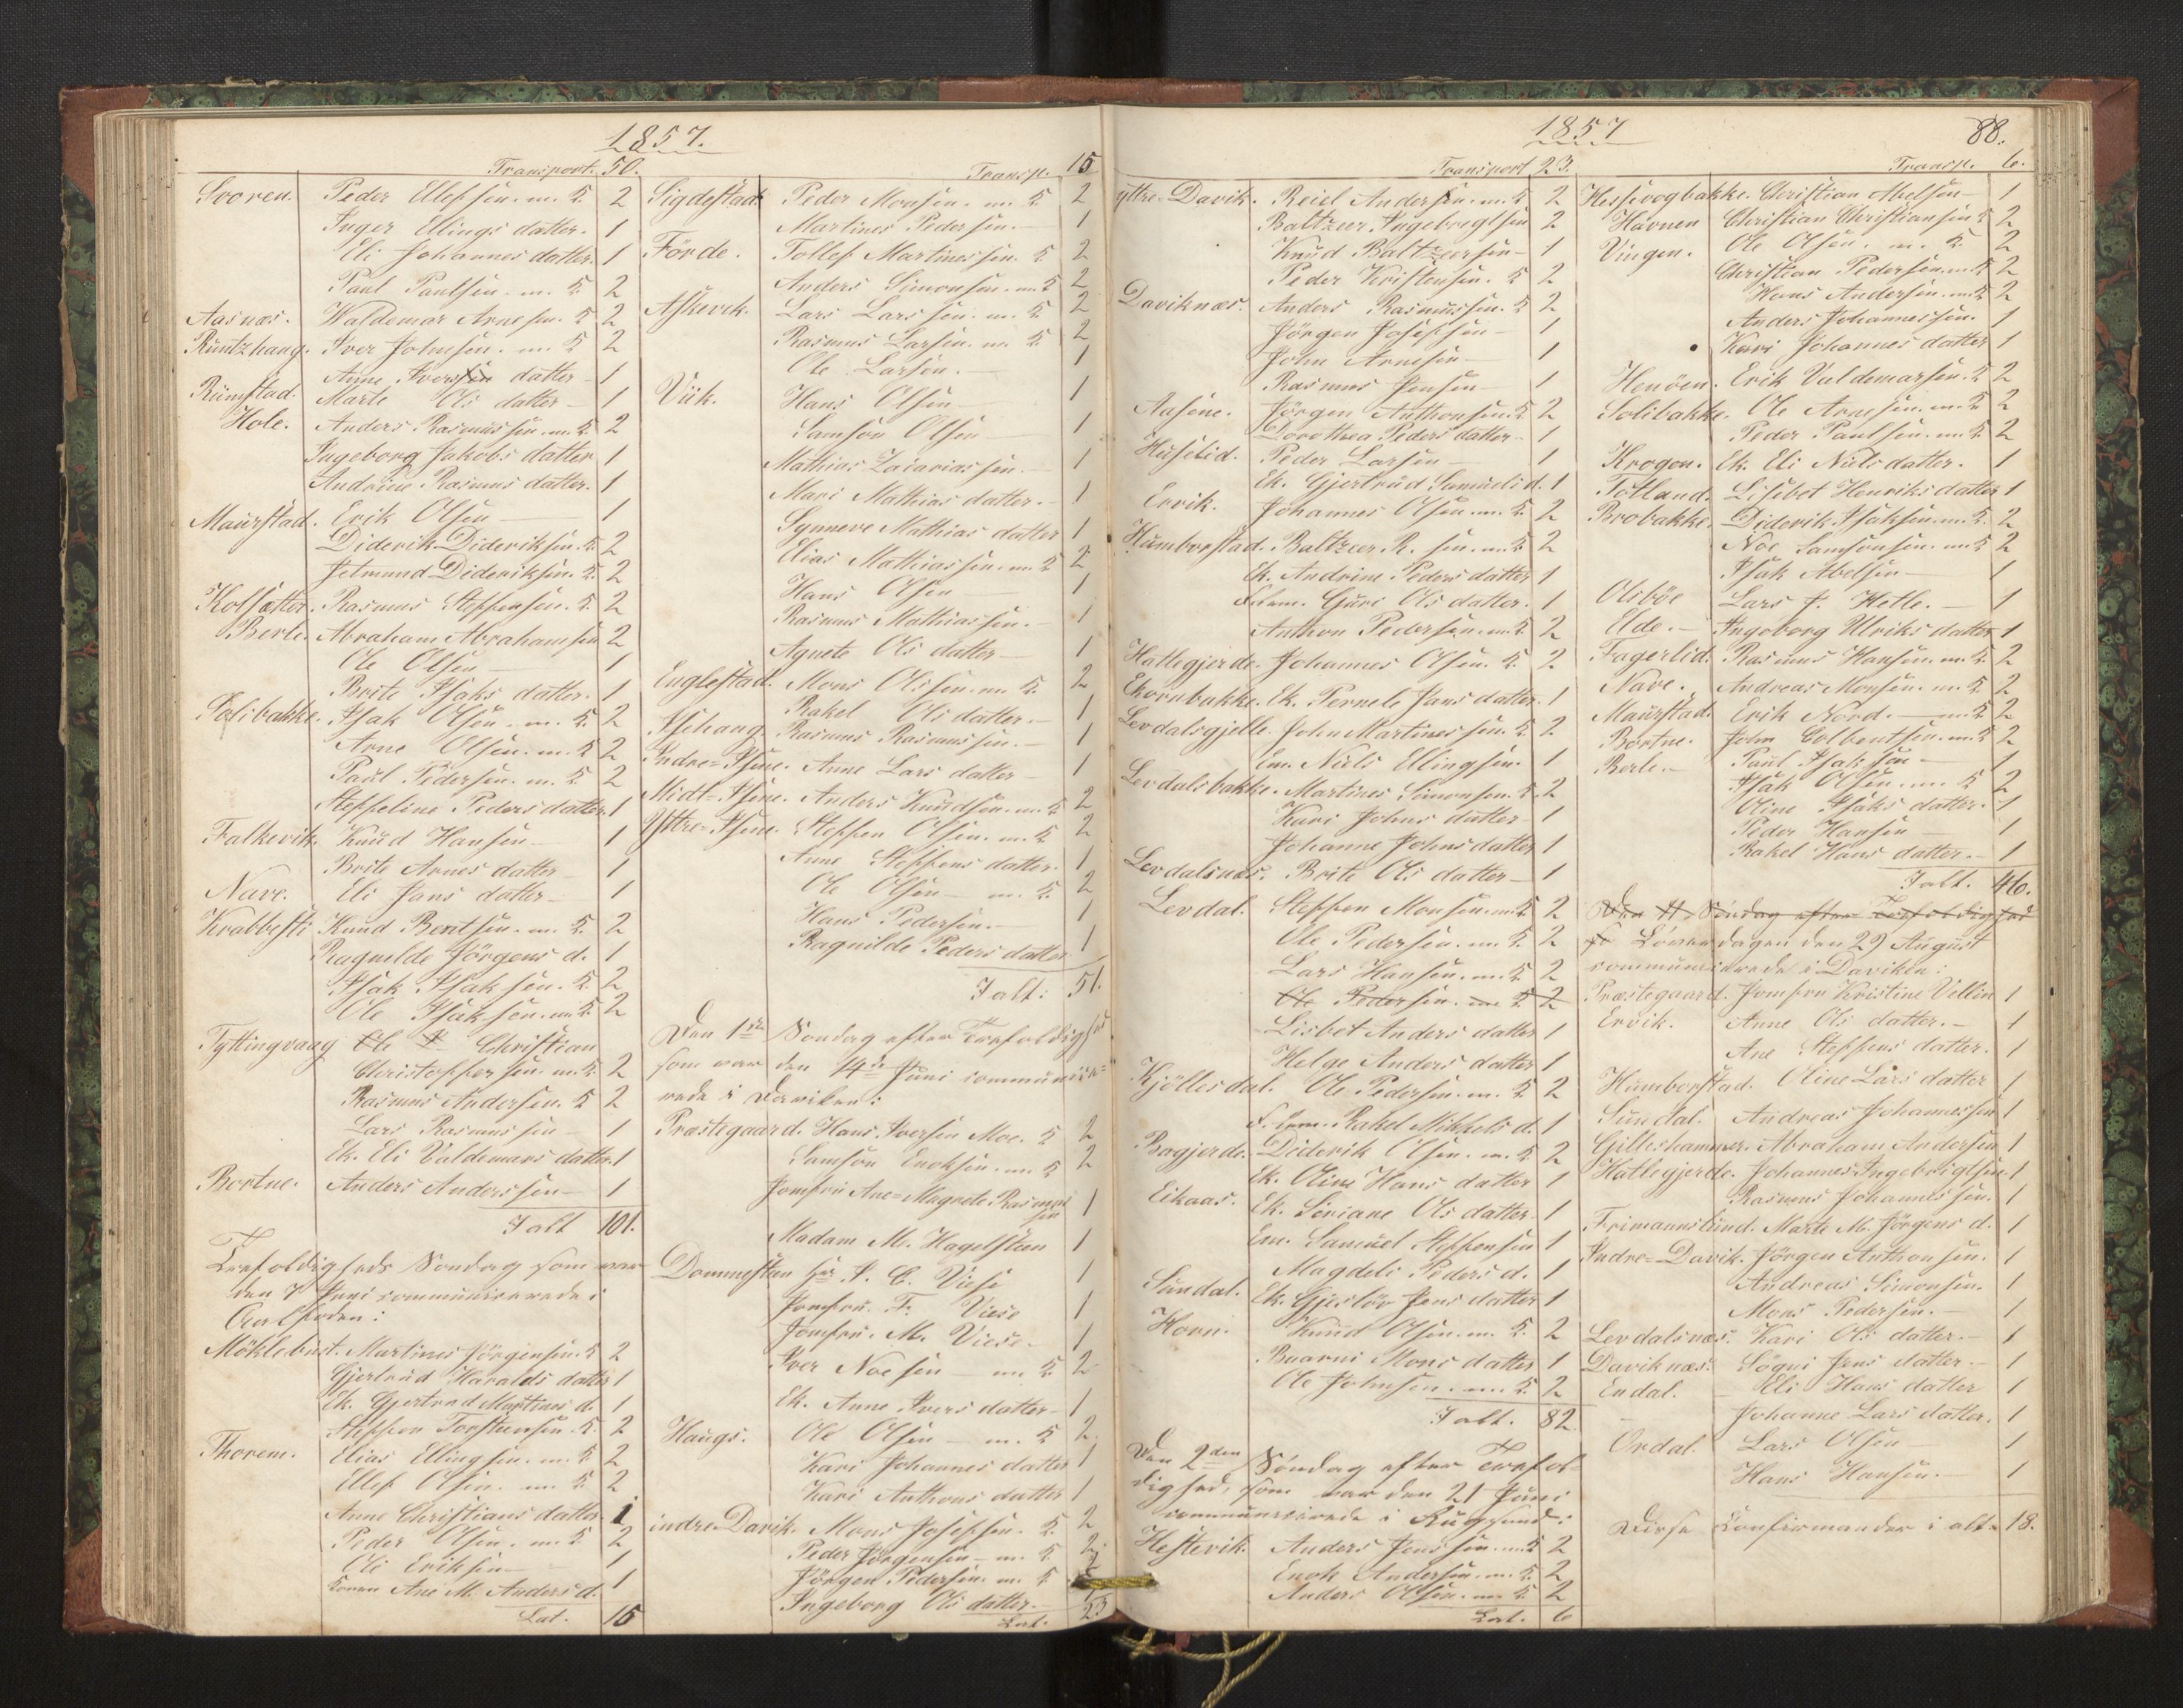 1857.
Transport. 50.
Svoren. Peder Ellefsen. m. K. 2
Inger Ellings datter. 1
Eli Johannes datter. 1
Paul Paulsen. m. K. 2
Aasnæs. Waldemar Arnesen. K. 2
Runtzhaug. Iver Johnsen. m. K. 2
Anne Iversen datter 1
Rimstad. Marte Ols datter 1
Hole. Anders Rasmussen. m. K. 2
Ingeborg Jakobs datter 1
Andrine Rasmus datter. 1
Maurstad. Erik Olsen 1
Diderik Dideriksen. K. 2
Jetmund Dideriksen. K. 2
Kolsætter. Rasmus Steffensen. K. 2
Berle. Abraham Abrahamsen 2
Ole Olsen 1
Brite Isaks datter. 1
Solibakke. Isak Olsen. m. K. 2
Arne Olsen. m. K. 2
Paul Pedersen. m. K. 2
Steffeline Peders datter 1
Falkevik. Knud Hansen 1
Brite Arnes datter 1
Nave. Eli Jans datter 1
Krabbesti Knud Bentsen. m. K. 2
Ragnilde Jörgens d. 1
Isak Isaksen. K. 2
Ole Isaksen. m. K. 2
Tyttingvaag Christian
Christoffersen. m. K. 2
Rasmus Andersen. K. 2
Lars Rasmussen 1
Ek. Eli Valdemars datter. 1
Bortne. Anders Anderssen 1
I alt 101.
Trefoldigheds Söndag som var
den 7 Juni communicerede i
Aalfoden:
Möklebust. Martines Jörgensen. K. 2
Gjertrud Haralds datter 1
Ek. Gjertrud Martines d. 1
Steffen Torstensen. K. 2
Thorem. Elias Ellingsen. m. K. 2
Ellef Olsen. m. K. 2
Anne Christians datter 1
Peder Olsen. m. K. 2
Oli Eriksen 1
Konen Ane M. Anders d. 1
Lat. 15
Transp. 15
Sigdestad Peder Monsen. m. K. 2
Martines Pedersen. 1
Förde. Tollef Martinessen. K. 2
Anders Simonsen. m. K. 2
Askevik. Lars Larssen. m. K. 2
Rasmus Larsen. m. K. 2
Ole Larsen. 1
Viik. Hans Olsen 1
Samson Olsen 1
Mathias Zacariassen. 1
Mari Mathias datter. 1
Synneve Mathias datter 1
Elias Mathiassen. m. K. 2
Hans Olsen 1
Rasmus Mathiassen. 1
Agnete Ols datter 1
Englestad. Mons Olssen. m. K. 2
Rakel Ols datter. 1
Isehaug Rasmus Rasmussen. 1
Indre-Isene. Anne Lars datter 1
Midt-Isene. Anders Knudsen. m. K. 2
Yttre-Isene. Steffen Olsen. m. K. 2
Anne Steffens datter. 1
Ole Olsen m. K. 2
Hans Pedersen. 1
Ragnilde Peders datter 1
I alt: 51.
Den 1ste Söndag efter Trefoldighed
som var den 14de Juni communice-
rede i Daviken:
Præstegaard. Hans Iversen Moe. K. 2
Samson Enoksen. m. K. 2
Jomfru Ane Magrete Rasmus
sen 1
Madam M. Hagelsteen 1
Dommesteen Hr. J. C. Viese 1
Jomfru. F. Viese 1
Jomfru. M. Viese 1
Iver Noesen m. K. 2
Ek. Anne Ivers datter 1
Haugs. Ole Olsen m. K. 2.
Kari Johannes datter 1
Kari Anthons datter 1
indre Davik. Mons Josefsen. K. 2
Peder Jörgensen m. K. 2
Jörgen Pedersen. m. K. 2
Ingeborg Ols datter. 1
Lat. 23
1857
88.
Transport 23.
yttre-Davik. Reiel Andersen. m. K. 2
Baltzer Ingebregtsen 2
Knud Baltzersen 1
Peder Kristensen. K. 2
Daviknæs. Anders Rasmussen. K. 2
Jörgen Josefsen 1
John Arnesen 1
Rasmus Jensen 1
Aasene. Jörgen Anthonsen. K. 2
Dorothea Peders datter 1
Huselid. Peder Larsen 1
Ek. Gjertrud Samuels d. 1
Ervik. Johannes Olsen. m. K. 2
Humborstad. Baltzer R. sen. m. K. 2
Ek. Andrine Peders datter 1
Guri Ols datter. 1
Anthon Pedersen. m. K. 2
Hatlegjerde. Johannes Olsen. K. 2
Ekornbakke. Ek. Pernele Jans datter. 1
Levdalsgjelle. John Martinessen. K. 2
Em. Niels Ellingsen. 1
Levdalsbakke. Martines Simonsen. K. 2
Kari Johns datter 1
Johanne Johns datter 1
Levdalsnæs. Brite Ols datter 1
Levdal. Steffen Monsen. m. K. 2
Ole Pedersen. m. K. 2
Lars Hansen. m. K. 2
Ole Pedersen. m. K. 2
Lisbet Anders datter 1
Helge Anders datter 1
Kjöllesdal. Ole Pedersen. m. K. 2
Rakel Mikkels d. 1
Bogjerde. Diderik Olsen. m. K. 2
Ek. Oline Hans datter 1
Eikaas. Ek. Siriane Ols datter. 1
Em. Samuel Steffensen 1
Magdeli Peders d. 1
Sundal. Ek. Gjeslöv Jens datter 1
Horn. Knud Olsen. m. K. 2
Buarni Mons datter 1
Ole Johnsen. m. K. 2
I alt. 82
Den 2den Söndag efter Trefol-
dighed, som var den 21 Juni
communicerede i Rugsund:
Hestevik. Anders Jenssen. m. K. 2
Enok Andersen. m. K. 2
Anders Olsen. m. K. 2
Lat. 6
Transp. 6.
Hessevogbakke. Christian Abelsen 1
Havnen Christian Christiansen K. 2
Vingen. Ole Olsen. m. K. 2
Christian Pedersen. m. K. 2
Hans Andersen. m. K. 2
Anders Johannessen. 1
Kari Johannes datter 1
Henöen. Erik Valdemarsen. K. 2
Solibakke. Ole Arnesen. m. K. 2
Peder Paulsen. m. K. 2
Krogen. Ek. Eli Niels datter. 1
Totland. Lisebet Henriks datter 1
Brobakke. Diderik Isaksen. m. K. 2
Noe Samsonsen. m. K. 2
Isak Abelsen 1
Olsböe Lars J. Hetle. 1
Elde. Ingeborg Ulriks datter 1
Fagerlid. Rasmus Hansen. m. K. 2
Nave. Andreas Monsen. m. K. 2
Maurstad. Erik Nord. m. K. 2
Bortne. John Colbentsen. m. K. 2
Berle. Paul Isaksen 1
Isak Olsen. m. K. 2
Oline Isaks datter. 1
Peder Hansen 1
Rakel Hans datter. 1
I alt. 46.
Den 11 Söndag efter Trefoldighed
Löverdagen den 29 August
communicerede i Daviken:
Præstegaard. Jomfru Kristine Vellin 1
Ervik. Anne Ols datter. 1
Ane Steffens datter. 1
Humborstad. Oline Lars datter 1
Sundal. Andreas Johannessen 1
Gilleshammer. Abraham Andersen 1
Hatlegjerde. Johannes Ingebrigtsen. 1
Rasmus Johannessen. 1
Frimannslund. Marte M. Jörgens d. 1
Indre-Davik. Jörgen Anthonsen. 1
Andreas Simonsen. 1
Mons Pedersen. 1
Levdalsnæs. Kari Ols datter. 1
Daviknæs. Sögni Jens datter. 1
Endal. Eli Hans datter 1
Johanne Lars datter. 1
Ordal. Lars Olsen 1
Hans Hansen. 1
Disse Confirmander i alt 18.